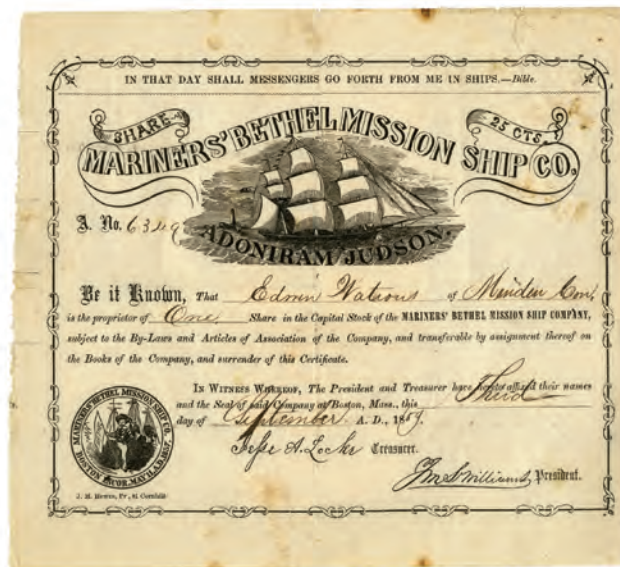 IN THAT DAY SHALL MESSENGERS GO FORTH FROM ME IN SHIPS.—Bible.
SHARE
25 CTS.
MARINERS' BETHEL MISSION SHIP CO.
A. No. 6349
ADONIRAM JUDSON.
Be it Known, That Edwin Watrous of
is the proprietor of One Share in the Capital Stock of the MARINERS' BETHEL MISSION SHIP COMPANY,
subject to the By-Laws and Articles of Association of the Company, and transferable by assignment thereof on
the Books of the Company, and surrender of this Certificate.
IN WITNESS WHEREOF, The President and Treasurer have hereto affixed their names
and the Seal of said Company at Boston, Mass., this Third
day of September A. D., 1859.
Jesse A. Locke Treasurer.
Jno. S. Williams, President.
MARINERS' BETHEL MISSION SHIP CO.
BOSTON
J. M. Hewes, Pr., 81 Cornhill